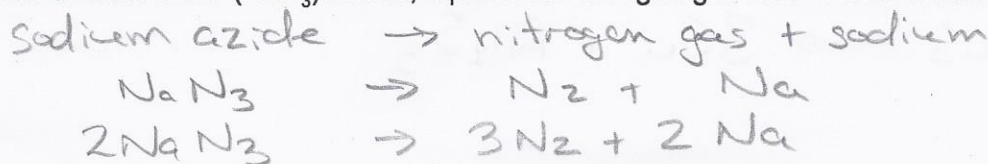 sodium azide → nitrogen gas + sodium
NaN₃ → N₂ + Na
2NaN₃ → 3N₂ + 2Na